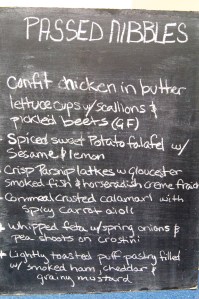 PASSED NIBBLES
Confit chicken in butter
lettuce cups w/scallions &
pickled beets (GF)
Spiced sweet Potato falafel w/
Sesame & lemon
Crisp Parsnip latkes w Gloucester
smoked fish & horseradish creme fraich
Cornmeal crusted calamari with
Spicy Carrot aioli
whipped feta w/spring onions &
pea shoots on crostini
Lightly toasted puff pastry filled
w/smoked ham, cheddar &
grainy mustard